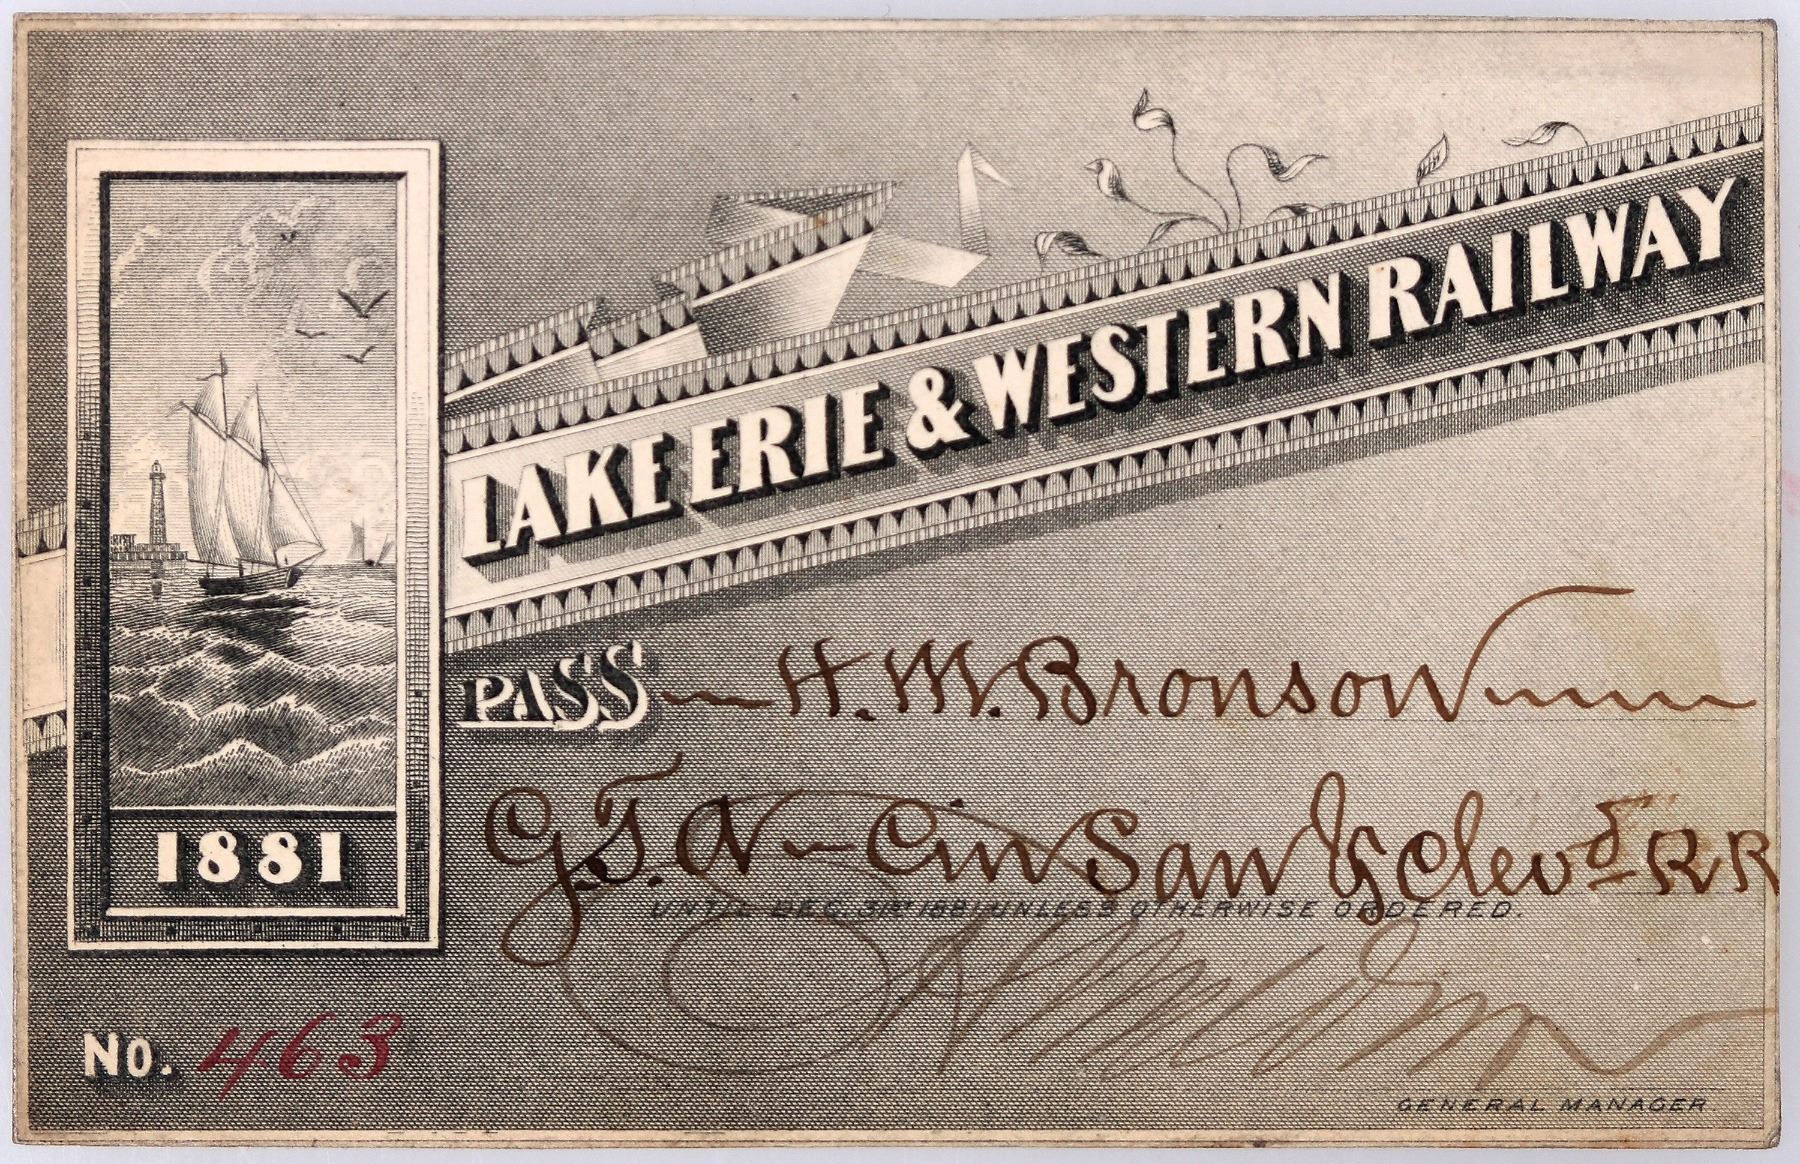 LAKE ERIE & WESTERN RAILWAY
PASS H. M. Bronson
G.T.A. Cin San & Clevd RR
UNTIL DEC. 31st 1881 UNLESS OTHERWISE ORDERED.
1881
No. 463
GENERAL MANAGER